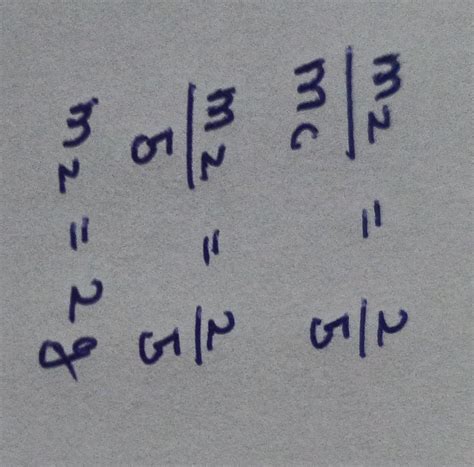 mN/mc = 2/5
mN/5 = 2/5
mN = 2g